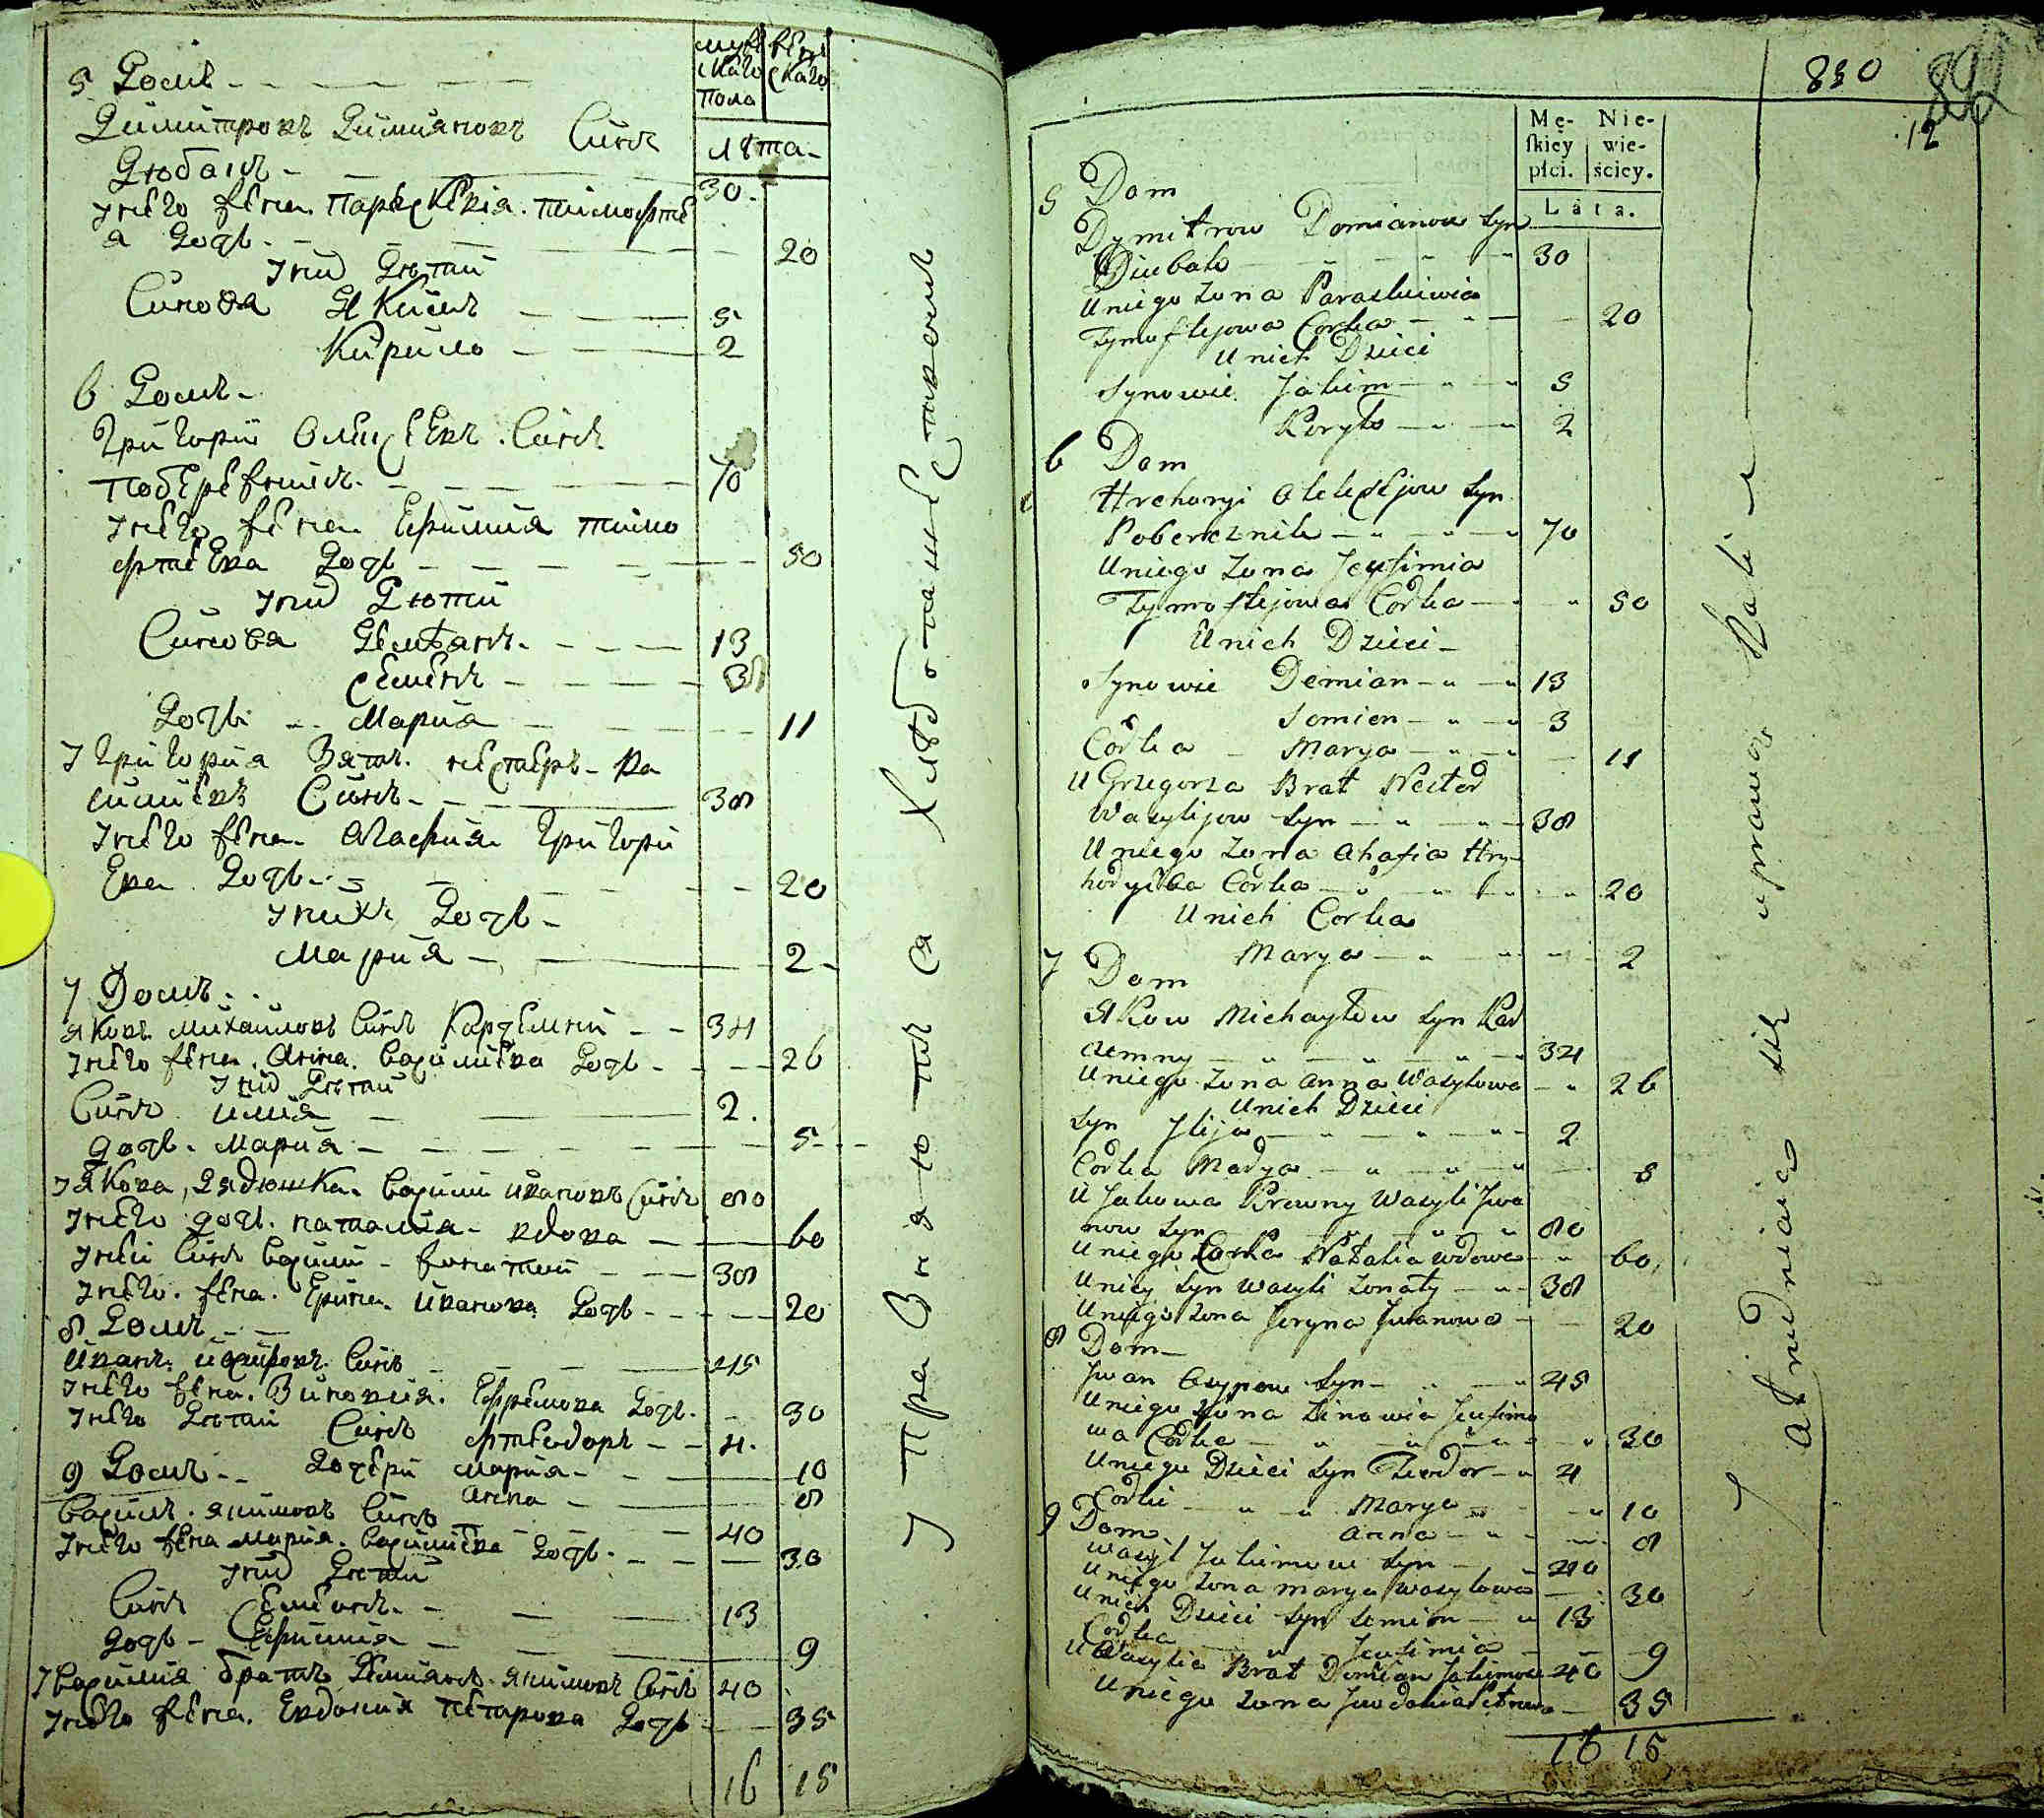 мужскаго пола женскаго
лѣта
5 Домъ
Димитровъ Димияновъ Синъ
Дюбанъ 30
Унего жена Параскевія Тимофте
я Дочь 20
Уних Дѣтий
Синова Якимъ 5
Кирило 2
6 Домъ
Григорій Олексеевъ Синъ
Побережникъ 70
Унего жена Ефимия Тимо
фтеева Дочь 50
Уних Дютий
Синова Демьянъ 13
Семенъ 3
Дочь Мария 11
У Григория Братъ Нестеръ Ва
силиевъ Синъ 38
Унего жена Агафия Григори
ева Дочь 20
Уних Дочь
Мария 2
7 Домъ
Яковъ Михайловъ Синъ Кардемний 34
Унего жена Анна Василиева Дочь 26
Уних Дѣтий
Синъ Илия 2
Дочь Мария 5
У Якова Дядюшка Васили Ивановъ Синъ 80
Унего дочь Наталия вдова 60
Уней Синъ Васили жонатий 38
Унего жена Ерина Иванова Дочь 20
8 Домъ
Иванъ Осиповъ Синъ 45
Унего жена Зиновия Ефремова Дочь 30
Унего Дѣтий Синъ Фтеодоръ 4
Дочери Мария 10
Анна 8
9 Домъ
Василъ Якимовъ Синъ 40
Унего жена Мария Василиева Дочь 30
Уних Дѣтий
Синъ Семионъ 13
Дочь Ефимия 9
У Василия братъ Демиянъ Якимовъ Синъ 40
Унего жена Евдокия Петрова Дочь 35
16 15
Управняютъ ся Хлѣбопашествомъ
850
12
Mę-skiey płci. Nie-wie-ściey.
Lata.
5 Dom
Dymitrow Domianow Syn
Diubak 30
Uniego Zona Paraskiewia
Tymoftejowa Corka 20
Unich Dzieci
Synowie Jakim 5
Koryło 2
6 Dom
Hrehoryi Oleksiejow Syn
Pobereznik 70
Uniego Zona Jeufimia
Tymoftejowa Corka 50
Unich Dzieci
Synowie Demian 13
Semien 3
Corka Marya 11
U Grzegorza Brat Nestor
Wasylijow Syn 38
Uniego Zona Ahafia Hry-
horyiowa Corka 20
Unich Corka
Marya 2
7 Dom
Jakow Michayłow Syn Kar
demny 34
Uniego Zona Anna Wasylowa 26
Unich Dzieci
Syn Jlija 2
Corka Marya 5
U Jakowa Krewny Wasyli Jwa
now Syn 80
Uniego Corka Natalia wdowa 60
Uniey Syn Wasyli Zonaty 38
Uniego Zona Jeryna Jwanowa 20
8 Dom
Jwan Osypow Syn 45
Uniego Zona Zinowia Jeufimo
wa Corka 30
Uniego Dzieci Syn Fteodor 4
Corki Marya 10
Anna 8
9 Dom
Wasyl Jakimow Syn 40
Uniego Zona Marya Wasylowa 30
Unich Dzieci Syn Semion 13
Corka Jeufimia 9
U Wasylia Brat Demian Jakimow 40
Uniego Zona Jewdokia Petrowa 35
16 15